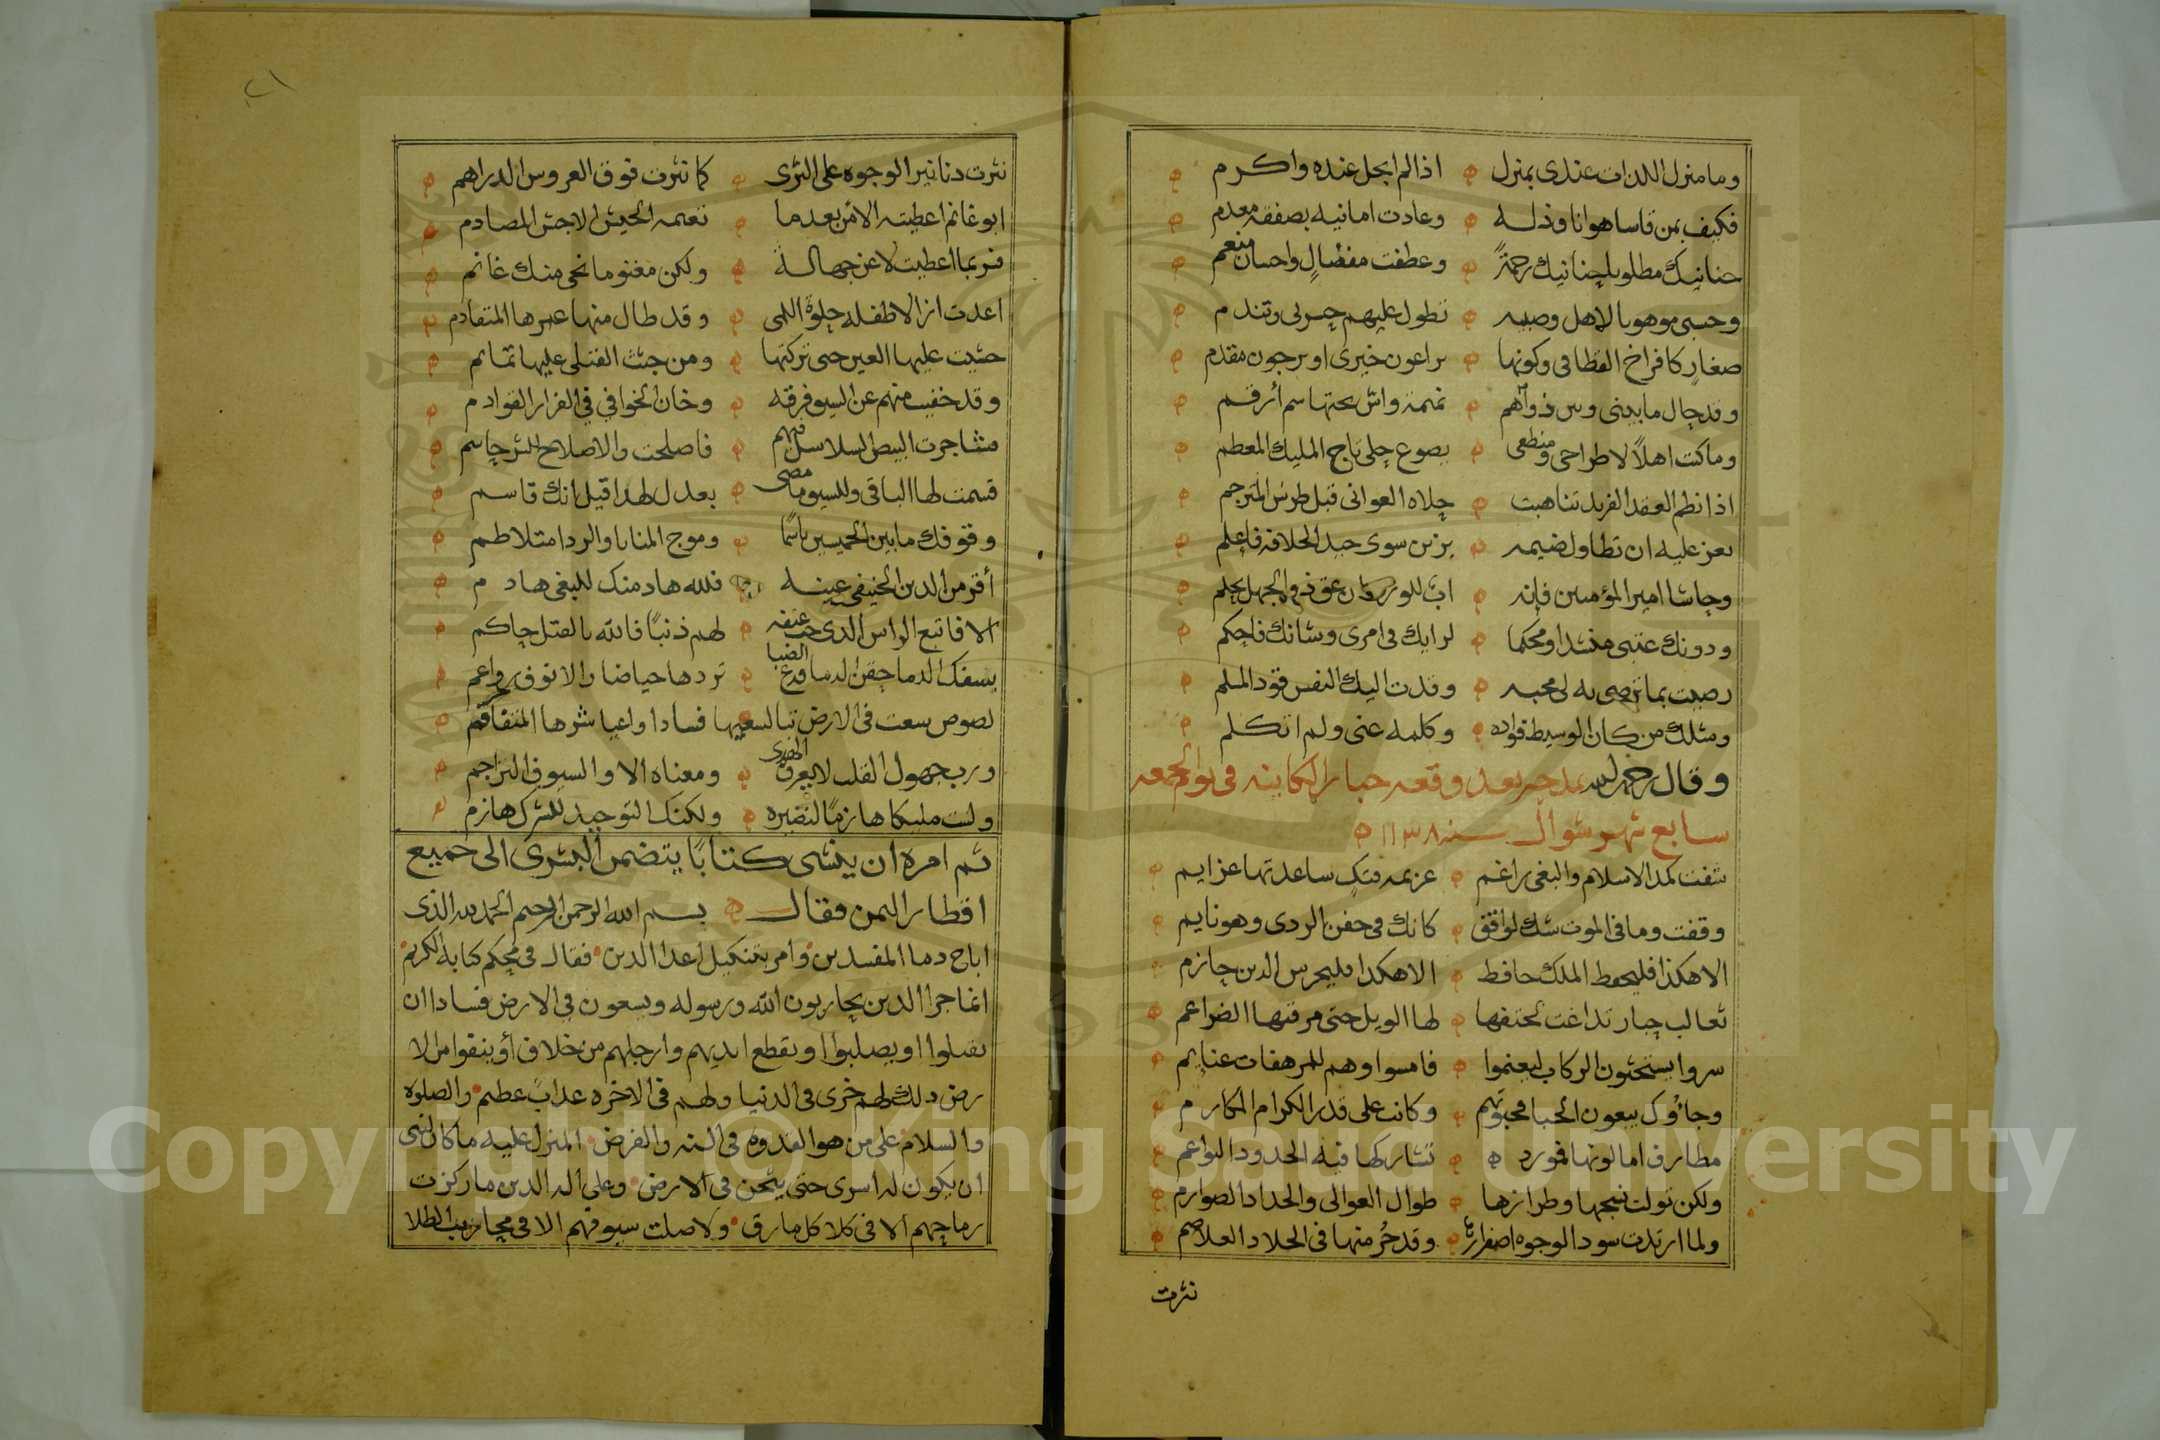 وما منزل اللذات عندى بمنزل اذا لم ابجل عنده واكرم
فكيف بمن قاسا هوانا وذلـه وعادت امانيه بصفقه معدم
حنانيك مطلوبا حنانيك رحمةً وعطفت مفضالٍ واحسان منعم
وحسى موهوبا لاهل وصبيه تطول عليهم
صغارٍ كافراخ القطا فى وكونها يراعون خيرى او يرجون مقدم
وقد حال ما بينى وبين ذوآهم نمنمة واش تحتها سم أرقم
وما كنت اهلاً لاطراحى بصوع حلى تاج المليك المعظم
اذا نظم العقد الفريد تناهبت حلاه الغوانى قبل طرس المترجم
يعز عليه ان تطاول ضيمه بزين سوى جيد الخلافه فاعلم
وحاشا امير المؤمنين فإنه
ودونك عتبى منشدا ومحكما لرايك فى امرى وشانك فاحكم
رضيت بما ترضى به لى محبه وقدت اليك النفس قود المسلم
ومثلك من كان الوسيط فواده وكلمه عنى ولم اتكلم
وقال رحمه الله يمدحه بعد وقعه حبار الكاينه فى يوم الجمعه
سابع شهر شوال سنه ١١٣٨
شفت كمد الاسلام والبغى راغم عزيمه فتكٍ ساعدتها عزايم
وقفت وما فى الموت شك لواقف كانك فى جفن الردى وهو نايم
الا هكذا فليحفظ الملك حافظ الا هكذا فليحرس الدين حازم
ثعالب حبار تداعت لحتفها لها الويل حتى مزقتها الضراغم
سروا يستحثون الركاب ليغنموا فامسوا وهم للمرهفات غنايم
وجاؤك يبغون الحبا فحبوتهم وكانت على قدر الكرام المكارم
مطارف اما لونها فمورد تشاركها فيه الخدود النواعم
ولكن تولت نسجها وطرازها طوال العوالى والحداد الصوارم
ولما ارتدت سود الوجوه اصفرارها وقد حُز منها فى الجلاد الغلاصم
نثرت
٢١
نثرت دنانير الوجوه على الثرى كما نثرت فوق العروس الدراهم
ابو غانم اعطيته الامن بعدما تغمه الجيش الاجش المصادم
فربما اعطيت لا عن جهالة ولكن مغنوما نحى منك غانم
اعدت ازالا طفله حلوة اللمى وقد طال منها عمرها المتقادم
حثيت عليها العين حتى تركتها ومن جثث القتلى عليها تمائم
وقد خفيت منهم عن السيوف فرقه وخان الخوافي في الفرار القوادم
مشاجرت البيض السلاسل فيهم فاصلحت والاصلاح للشر حاسم
قسمت لها الباقى وللسيوف ما مضى بعدل لهذا قيل انك قاسم
وقوفك ما بين الخميسين باسمًا وموج المنايا والردا متلاطم
أقر من الدين الحنيفي عينه فلله هاد منك للبغى هادم
الا فاتبع الراس الذى جب عنقه لهم ذنبًا فالله بالعتل حاكم
بسفك الدما حقن الدما ودع الضبا تردها حياضا والانوف رواغم
لصوص سعت فى الارض تبا لسعيها فسادا واعيا شرها المتفاقم
ورب جهول القلب لا يعرف الهدى ومعناه الا والسيوف التراجم
ولست مليكا هازمًا لنظيره ولكنك التوحيد للشرك هازم
ثم امره ان ينشى كتابًا يتضمن البشرى الى جميع
اقطار اليمن فقال بسم الله الرحمن الرحيم الحمد لله الذى
اباح دما المفسدين وامر بتنكيل اعدا الدين فقال فى محكم كتابه الكريم
انما جزا الذين يحاربون الله ورسوله ويسعون في الارض فسادا ان
يقتلوا او يصلبوا او يقطع ايديهم وارجلهم من خلاف أو ينفوا من الا
رض ذلك لهم خزى فى الدنيا ولهم فى الاخره عذاب عظيم والصلوة
والسلام على من هو القدوه فى السنه والفرض المنزل عليه ما كان لنبى
ان يكون له اسرى حتى يثخن فى الارض وعلى اله الذين ما ركزت
رماحهم الا فى كلا كل مارق ولا صلت سيوفهم الا فى محاريب الطلا
Copyright © King Saud University